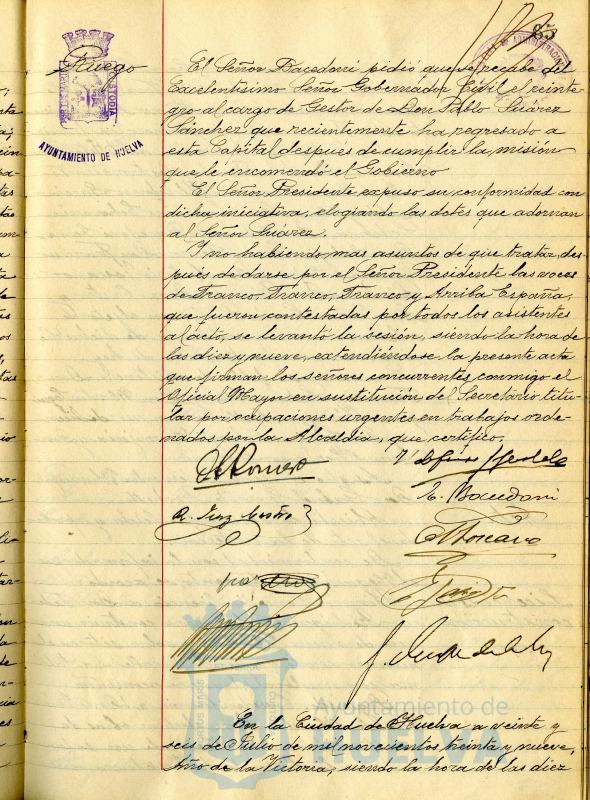 85
Ruego
CUSTODIA
AYUNTAMIENTO DE HUELVA
El Señor Bacedoni pidió que se recabe del
Excelentísimo Señor Gobernador Civil el reinte-
gro al cargo de Gestor de Don Pablo Suárez
Sánchez que recientemente ha regresado a
esta Capital después de cumplir la misión
que le encomendó el Gobierno
El Señor Presidente expuso su conformidad con
dicha iniciativa, elogiando las dotes que adornan
al Señor Suárez.
Y no habiendo mas asuntos de que tratar, des-
pués de darse por el Señor Presidente las voces
de Franco, Franco, Franco y Arriba España,
que fueron contestadas por todos los asistentes
al acto, se levantó la sesión, siendo la hora de
las diez y nueve, extendiéndose la presente acta
que firman los señores concurrentes conmigo el
Oficial Mayor en sustitución del Secretario titu-
lar por ocupaciones urgentes en trabajos orde-
nados por la Alcaldía, que certifico,
Romero
Bacedoni
Ayuntamiento de
HUELVA
En la Ciudad de Huelva a veinte y
seis de Julio de mil novecientos treinta y nueve,
Año de la Victoria, siendo la hora de las diez